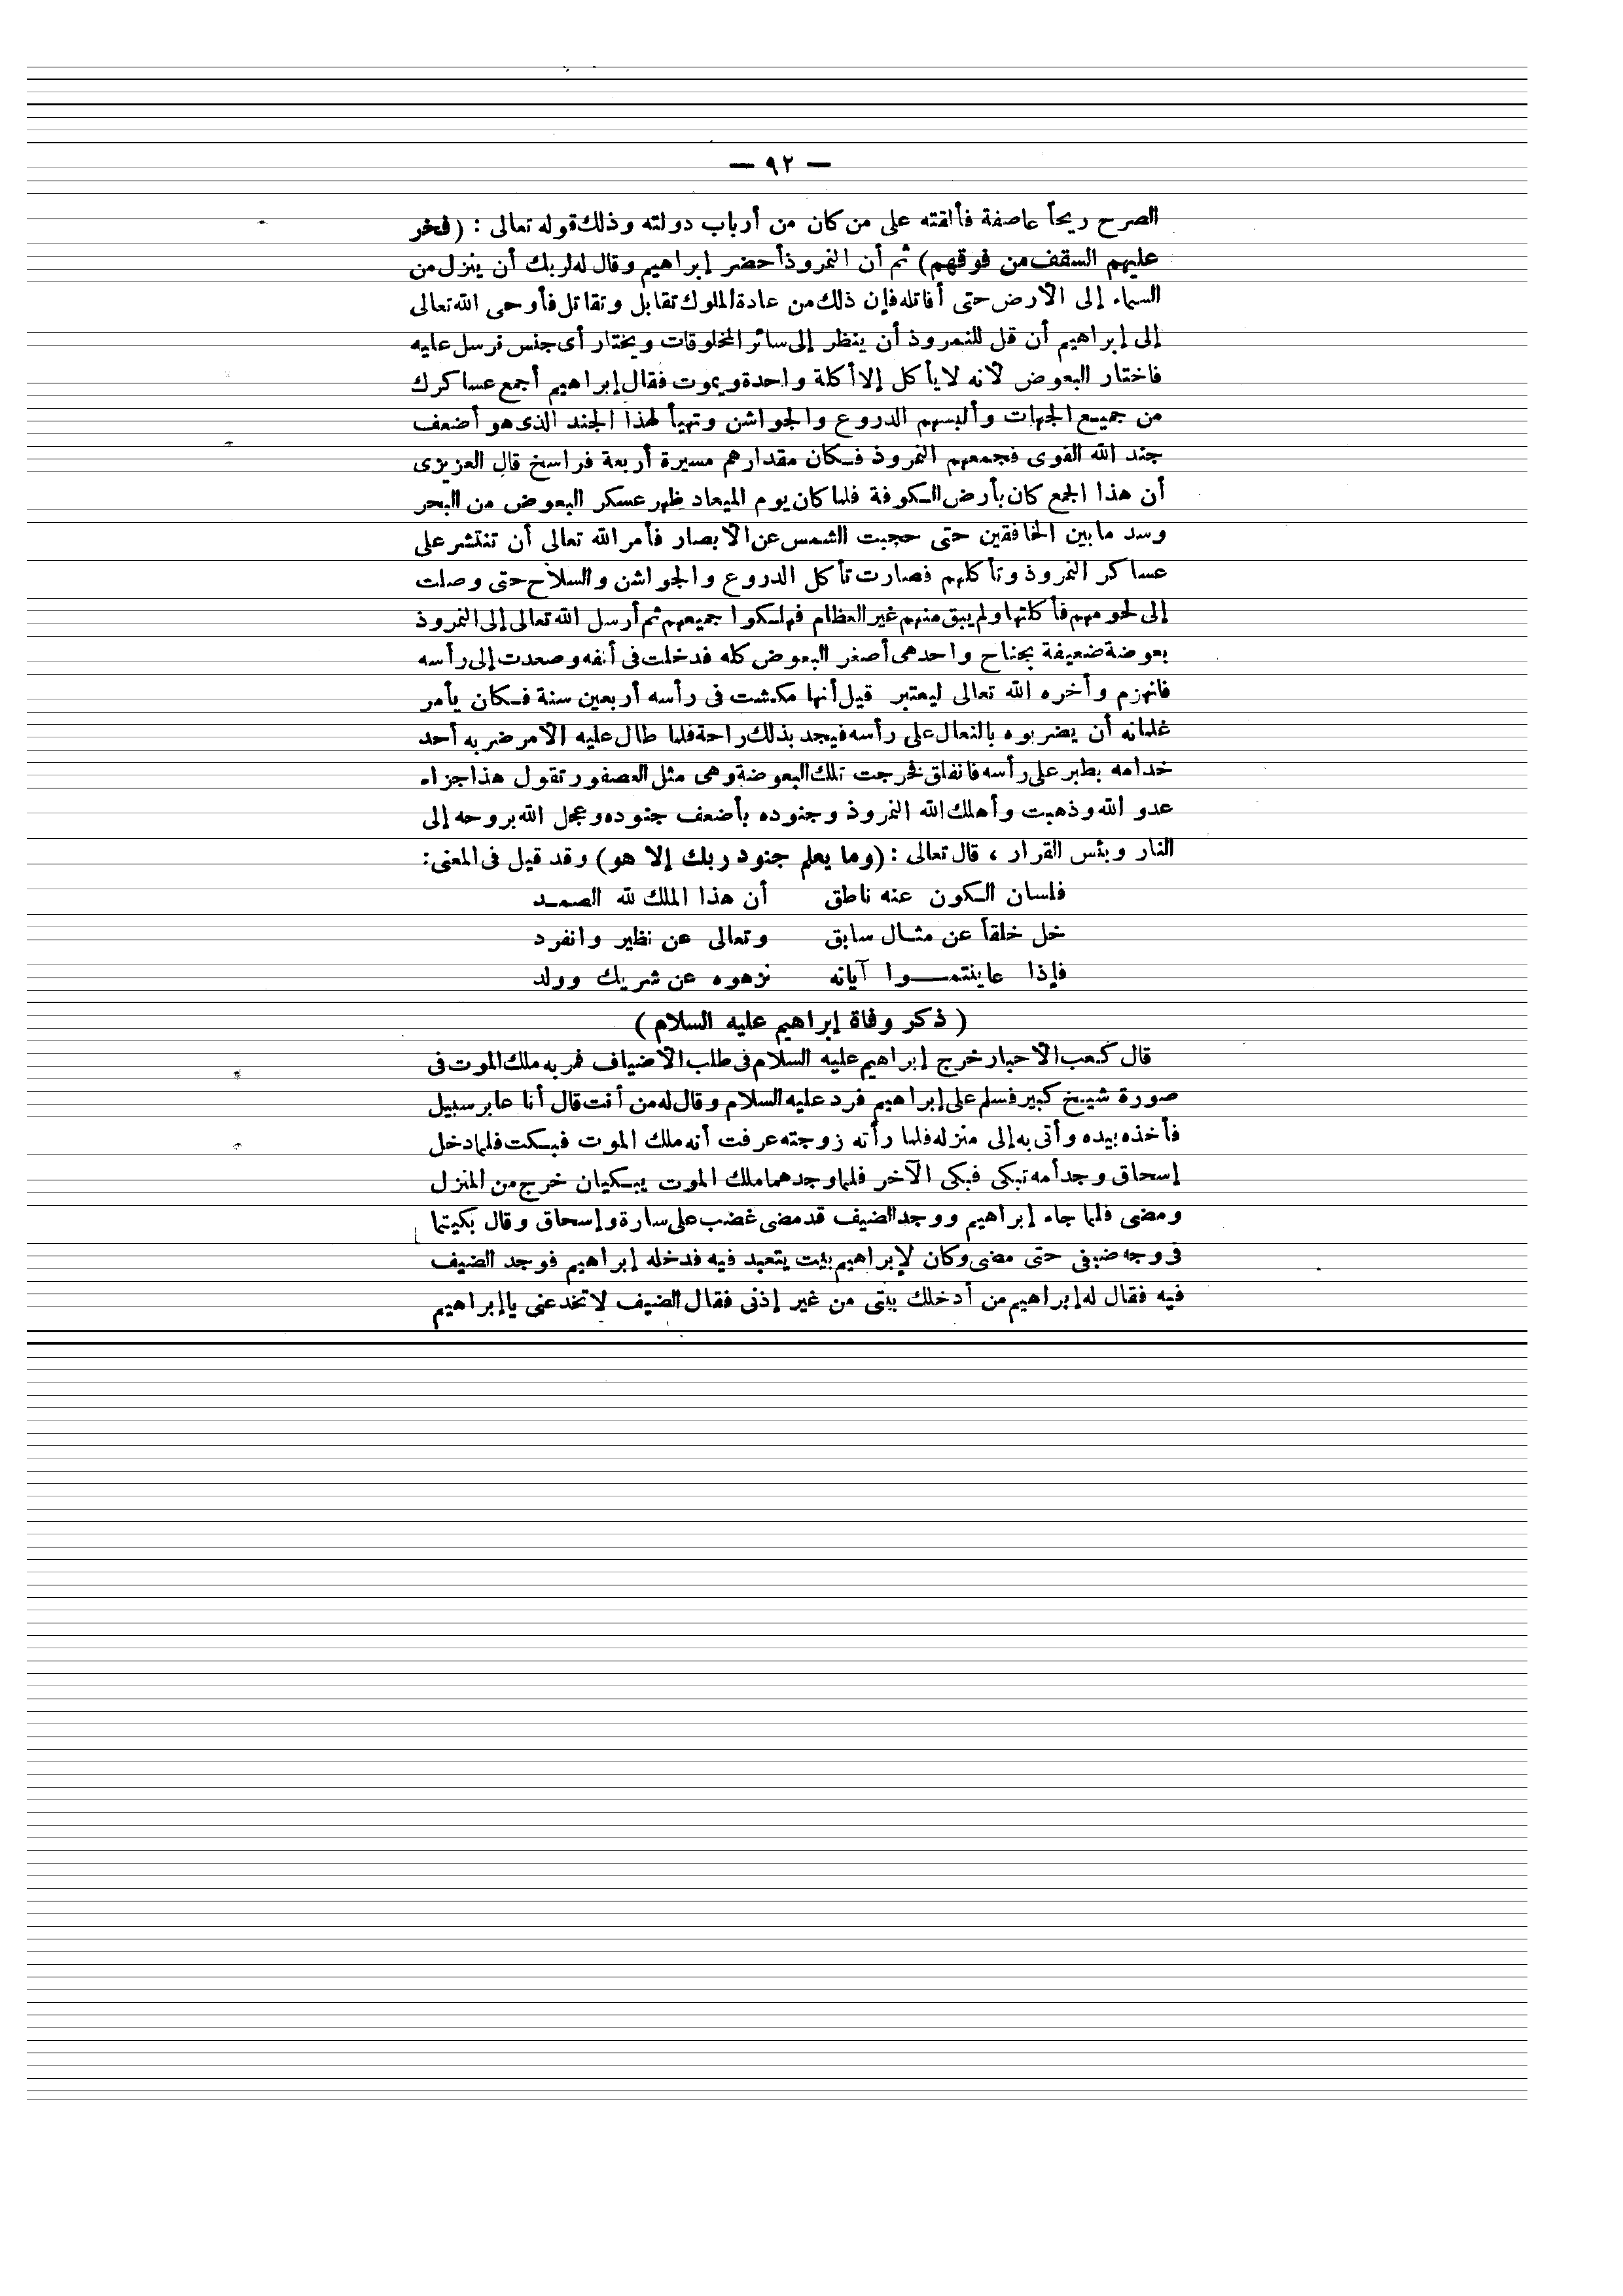 — ٩٢ —
الصرح ريحاً عاصفة فألقته على من كان من أرباب دولته وذلك قوله تعالى : (فخر
عليهم السقف من فوقهم) ثم أن النمروذ أحضر إبراهيم وقال له لربك أن ينزل من
السماء إلى الأرض حتى أقاتله فإن ذلك من عادة الملوك تقابل وتقاتل فأوحى الله تعالى
إلى إبراهيم أن قل للنمروذ أن ينظر إلى سائر المخلوقات ويختار أى جنس نرسل عليه
فاختار البعوض لأنه لا يأكل إلا أكلة واحدة ويموت فقال إبراهيم أجمع عساكرك
من جميع الجهات وألبسهم الدروع والجواشن وتهيأ لهذا الجند الذى هو أضعف
جند الله القوى فجمعهم النمروذ فكان مقدارهم مسيرة أربعة فراسخ قال العزيزى
أن هذا الجمع كان بأرض الكوفة فلما كان يوم الميعاد ظهر عسكر البعوض من البحر
وسد ما بين الخافقين حتى حجبت الشمس عن الأبصار فأمر الله تعالى أن تنتشر على
عساكر النمروذ وتأكلهم فصارت تأكل الدروع والجواشن والسلاح حتى وصلت
إلى لحومهم فأكلتها ولم يبق منهم غير العظام فهلكوا جميعهم ثم أرسل الله تعالى إلى النمروذ
بعوضة ضعيفة بجناح واحد هى أصغر البعوض كله فدخلت فى أنفه وصعدت إلى رأسه
فانهزم وأخره الله تعالى ليعتبر قيل أنها مكثت فى رأسه أربعين سنة فكان يأمر
غلمانه أن يضربوه بالنعال على رأسه فيجد بذلك راحة فلما طال عليه الأمر ضربه أحد
خدامه بطبر على رأسه فانفلق فخرجت تلك البعوضة وهى مثل العصفور تقول هذا جزاء
عدو الله وذهبت وأهلك الله النمروذ وجنوده بأضعف جنوده وعجل الله بروحه إلى
النار وبئس القرار ، قال تعالى : (وما يعلم جنود ربك إلا هو) وقد قيل فى المعنى :
فلسان الكون عنه ناطق أن هذا الملك لله الصمد
خل خلقاً عن مثال سابق وتعالى عن نظير وانفرد
فإذا عاينتموا آياته نزهوه عن شريك وولد
( ذكر وفاة إبراهيم عليه السلام )
قال كعب الأحبار خرج إبراهيم عليه السلام فى طلب الأضياف فمر به ملك الموت فى
صورة شيخ كبير فسلم على إبراهيم فرد عليه السلام وقال له من أنت قال أنا عابر سبيل
فأخذه بيده وأتى به إلى منزله فلما رأته زوجته عرفت أنه ملك الموت فبكت فلما دخل
إسحاق وجد أمه تبكى فبكى الآخر فلما وجدهما ملك الموت يبكيان خرج من المنزل
ومضى فلما جاء إبراهيم ووجد الضيف قد مضى غضب على سارة وإسحاق وقال بكيتما
فى وجه ضيفى حتى مضى وكان لإبراهيم بيت يتعبد فيه فدخله إبراهيم فوجد الضيف
فيه فقال له إبراهيم من أدخلك بيتى من غير إذنى فقال الضيف لا تخدعنى يا إبراهيم